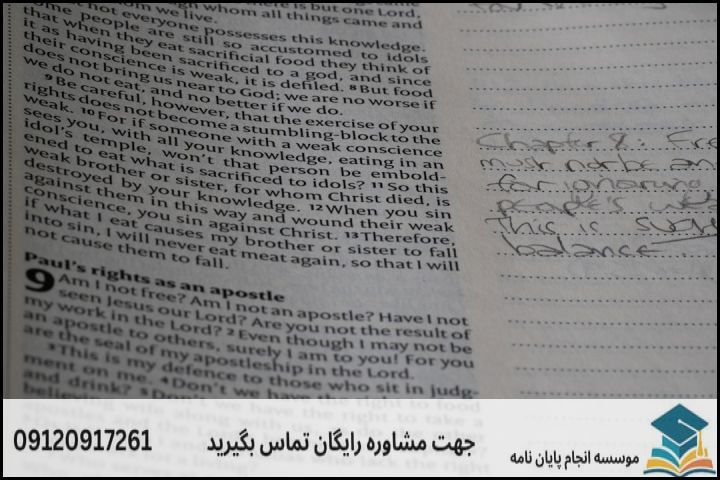 whom all things came and
whom we live.
not everyone possesses this knowledge.
some people are still so accustomed to idols
that when they eat sacrificial food they think of
it as having been sacrificed to a god, and since
their conscience is weak, it is defiled. 8 But food
does not bring us near to God; we are no worse if
we do not eat, and no better if we do.
9 Be careful, however, that the exercise of your
rights does not become a stumbling-block to the
weak. 10 For if someone with a weak conscience
sees you, with all your knowledge, eating in an
idol's temple, won't that person be embold-
ened to eat what is sacrificed to idols? 11 So this
weak brother or sister, for whom Christ died, is
destroyed by your knowledge. 12 When you sin
against them in this way and wound their weak
conscience, you sin against Christ. 13 Therefore,
if what I eat causes my brother or sister to fall
into sin, I will never eat meat again, so that I will
not cause them to fall.
Paul's rights as an apostle
9 Am I not free? Am I not an apostle? Have I not
seen Jesus our Lord? Are you not the result of
my work in the Lord? 2 Even though I may not be
an apostle to others, surely I am to you! For you
are the seal of my apostleship in the Lord.
3 This is my defence to those who sit in judg-
ment on me. 4 Don't we have the right to food
and drink? 5 Don't we have the right to take a
believing wife along with us
Chapter 8: Fre
must not be an
for ignoring
people's
This is
balance.
جهت مشاوره رایگان تماس بگیرید 09120917261
موسسه انجام پایان نامه